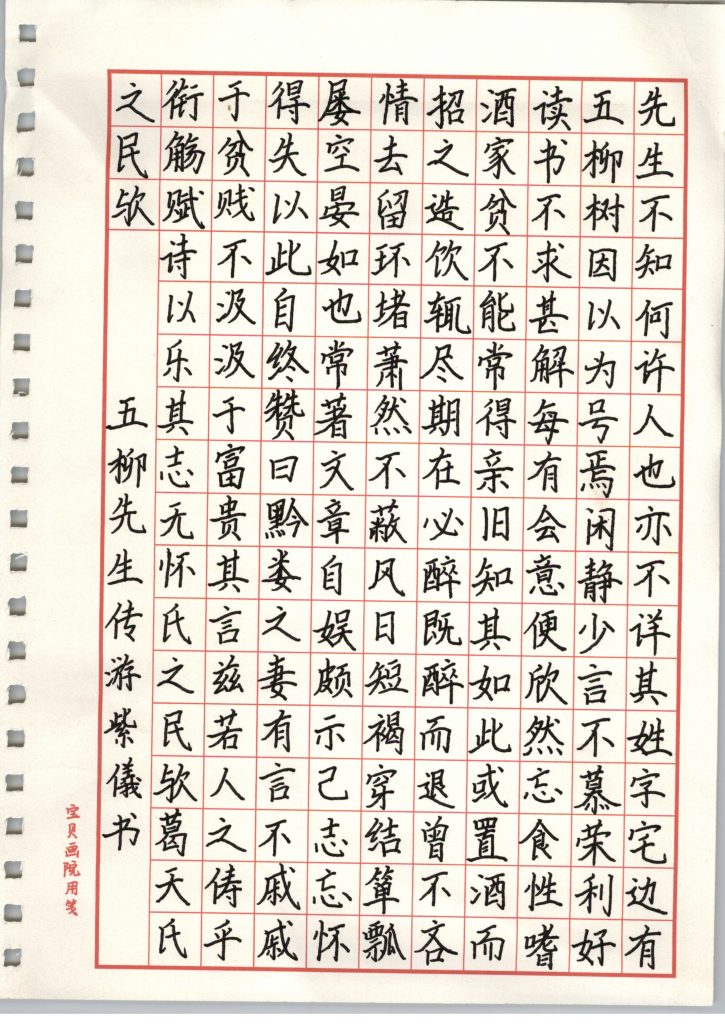 先生不知何许人也亦不详其姓字宅边有
五柳树因以为号焉闲静少言不慕荣利好
读书不求甚解每有会意便欣然忘食性嗜
酒家贫不能常得亲旧知其如此或置酒而
招之造饮辄尽期在必醉既醉而退曾不吝
情去留环堵萧然不蔽风日短褐穿结箪瓢
屡空晏如也常著文章自娱颇示己志忘怀
得失以此自终赞曰黔娄之妻有言不戚戚
于贫贱不汲汲于富贵其言兹若人之俦乎
衔觞赋诗以乐其志无怀氏之民欤葛天氏
之民欤
五柳先生传游紫儀书
宝贝画院用笺